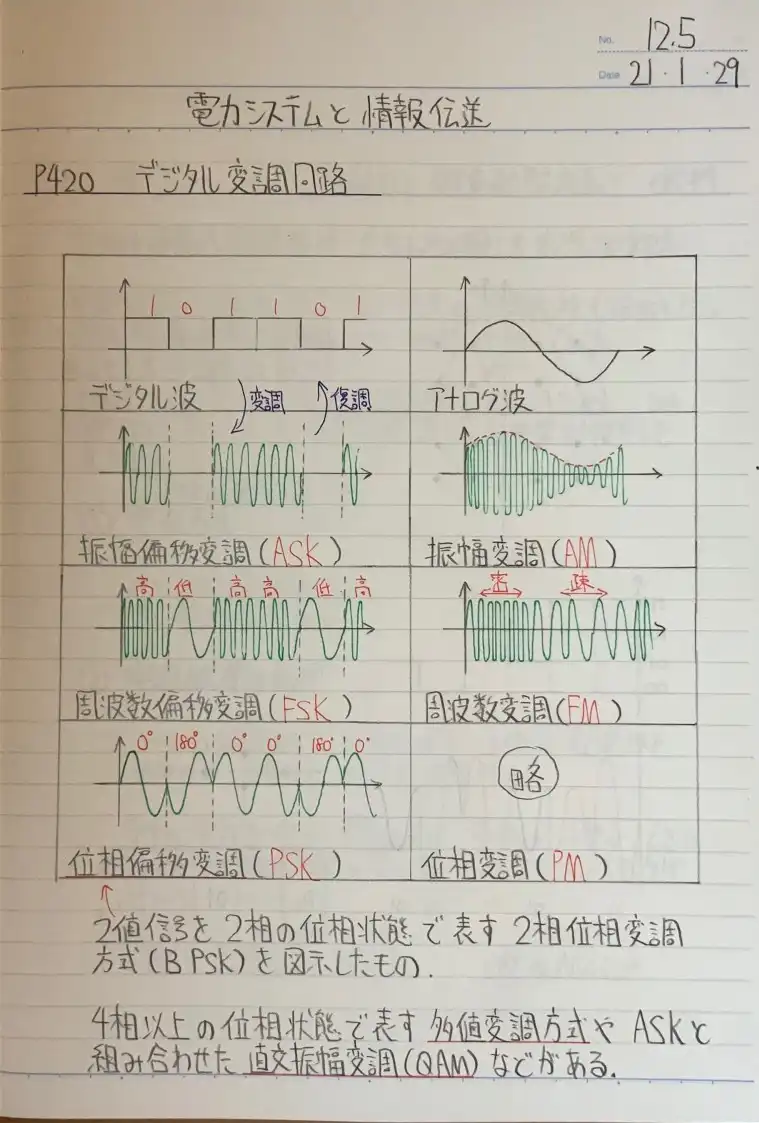 No. 12.5
Date 21・1・29
電力システムと情報伝送
P420 デジタル変調回路
1 0 1 1 0 1
デジタル波 変調 復調
アナログ波
振幅偏移変調(ASK)
振幅変調(AM)
高 低 高 高 低 高
周波数偏移変調(FSK)
密 疎
周波数変調(FM)
0° 180° 0° 0° 180° 0°
位相偏移変調(PSK)
略
位相変調(PM)
2値信号を2相の位相状態で表す2相位相変調
方式(BPSK)を図示したもの.
4相以上の位相状態で表す多値変調方式やASKと
組み合わせた直交振幅変調(QAM)などがある.